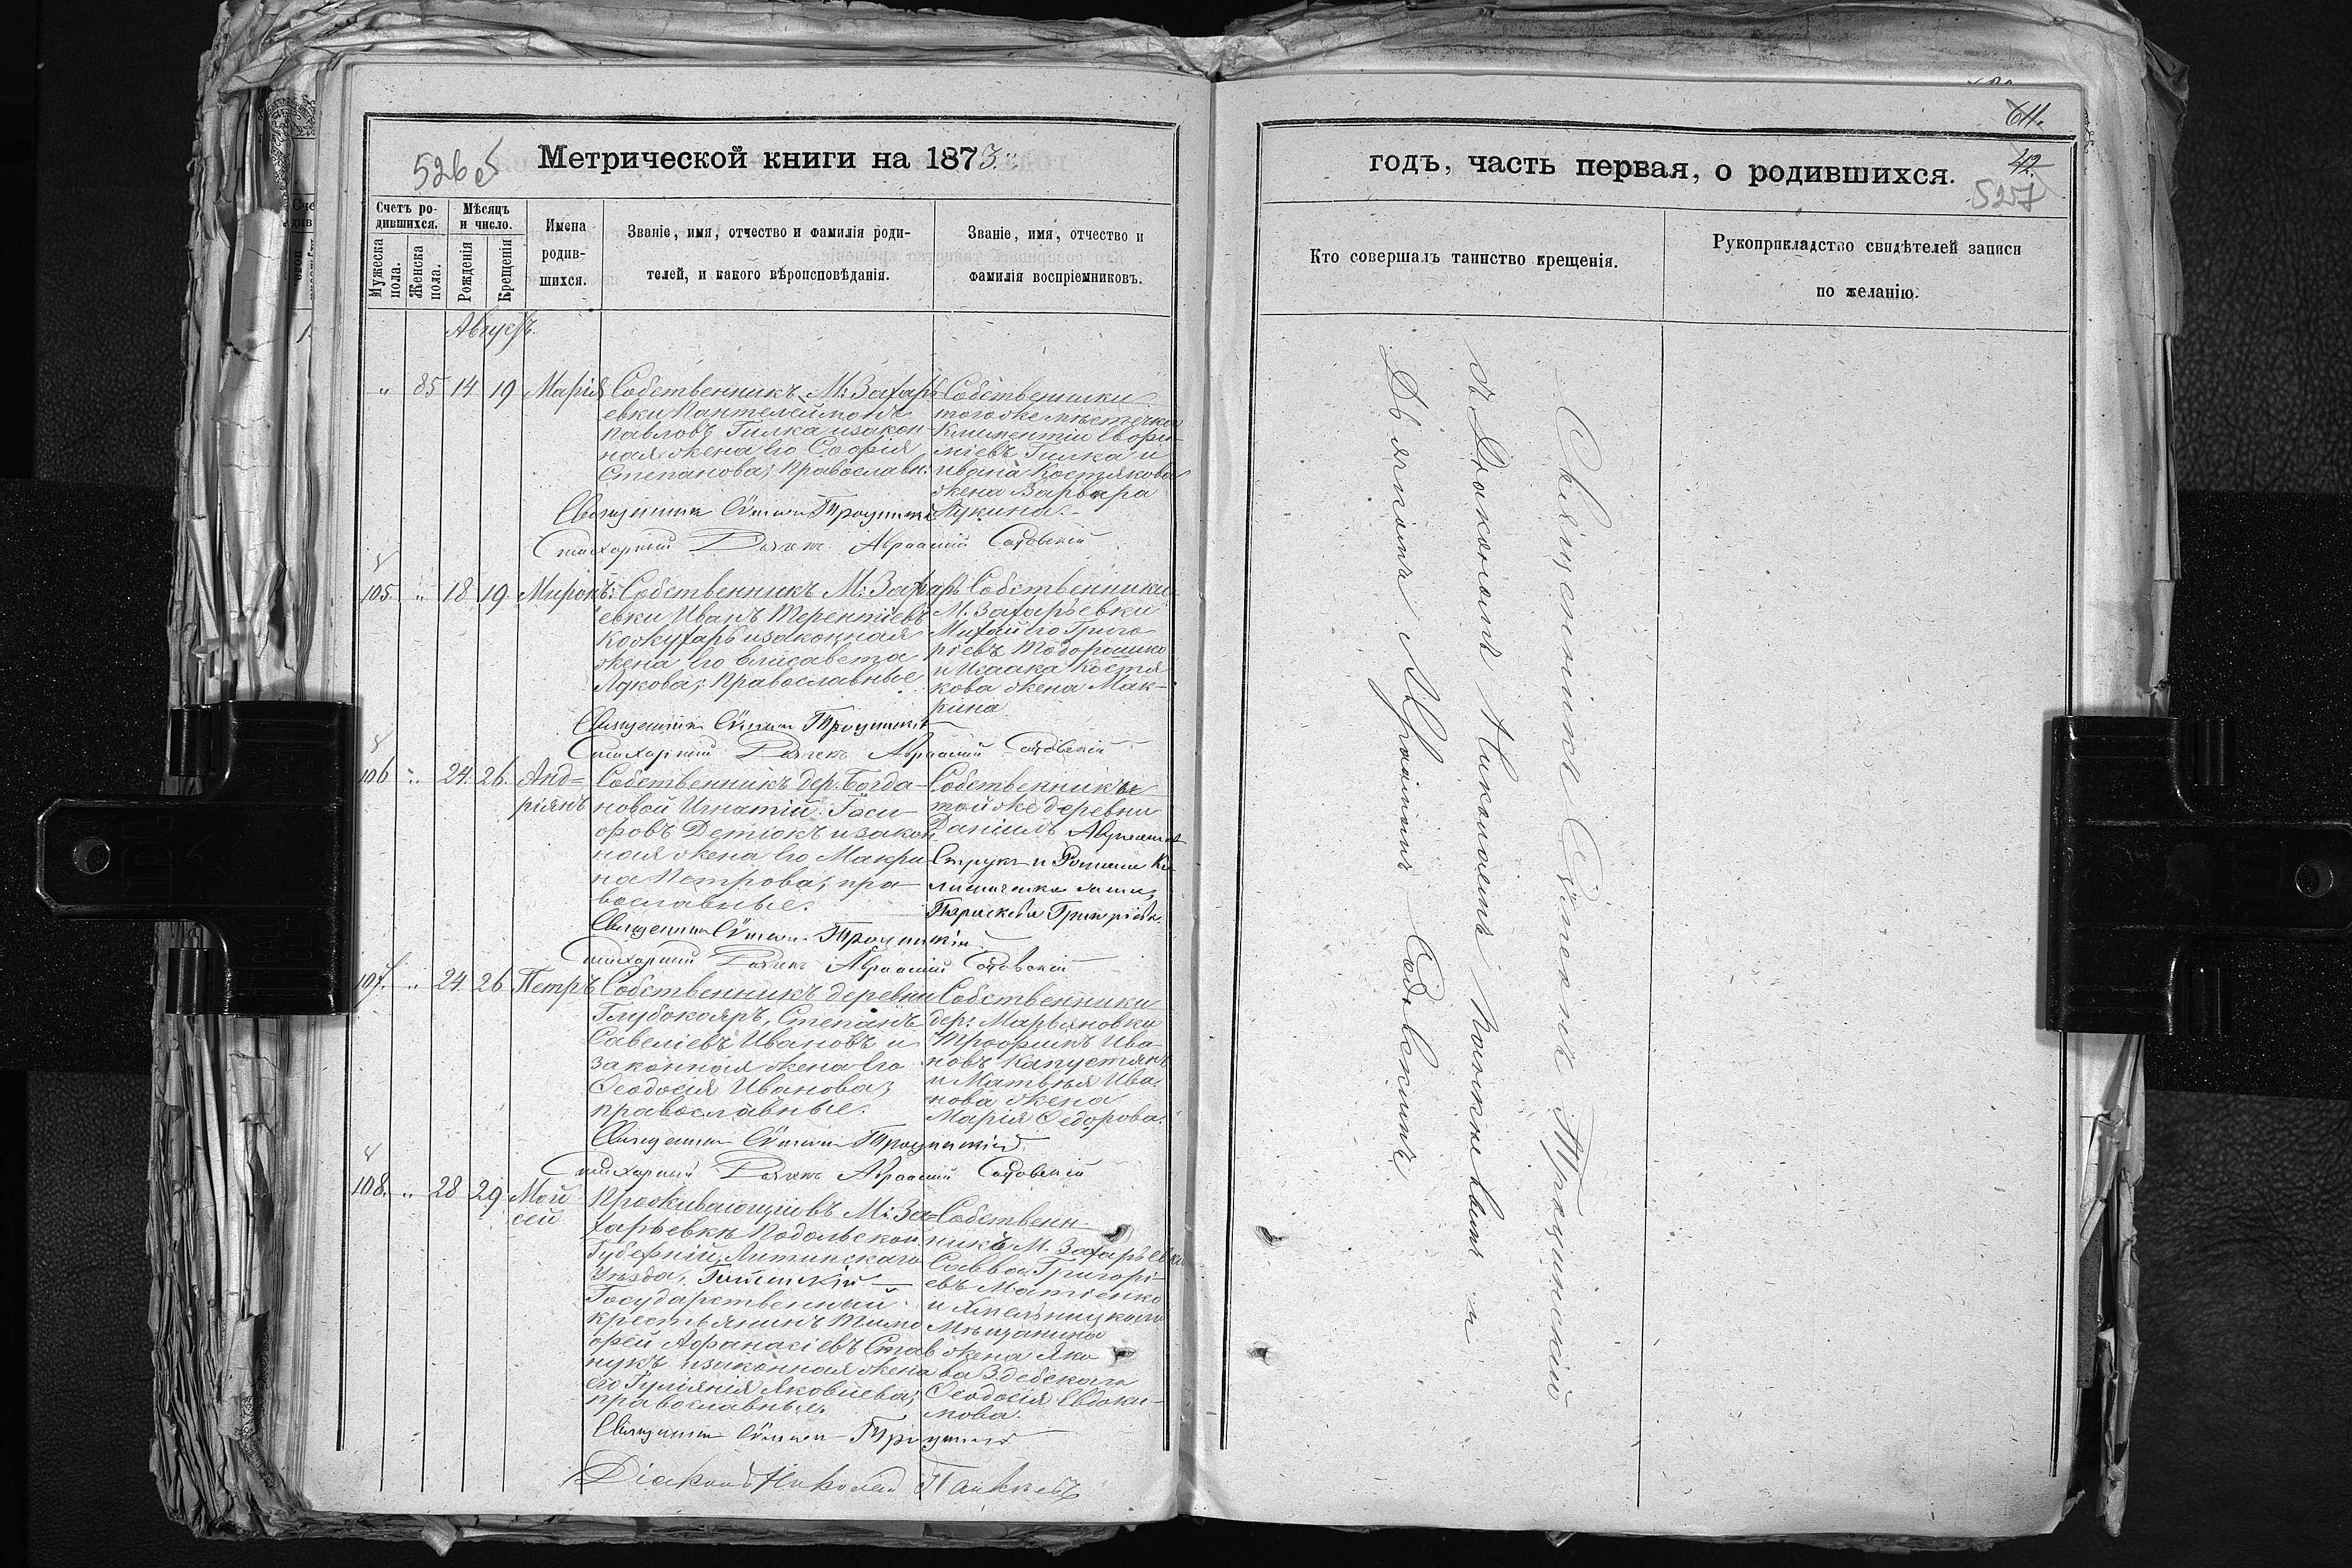 526 об
Метрической книги на 1873
Счетъ ро-
дившихся.
Мужеска пола.
Женска пола.
Мѣсяцъ
и число.
Рожденія
Крещенія
Имена
родив-
шихся.
Званіе, имя, отчество и фамилія роди-
телей, и какого вѣроисповѣданія.
Званіе, имя, отчество и
фамилія воспріемниковъ.
Августъ.
" 85 14 19 Марія
Собственникъ М: Захарь-
евки Пантелеймонъ
Павловъ Гилка и закон-
ная жена его Софія
Степанова; православн:
Собственники
того же мѣстечка
Климентій Евфи-
міевъ Гилка и
Ивана Костякова
жена Варвара
Лукина.
Священникъ Сѵмеонъ Троицкій
Стихарный Дьячекъ Авраамій Садовскій
105. " 18 19 Миронъ:
Собственникъ М: Захарь
евки Иванъ Терентіевъ
Кожухарь и законная
жена его Елисавета
Лукова; православные
Собственники
М. Захарьевки
Михаило Григо
ріевъ Тодорашко
и Исаака Костя
кова жена Мак-
рина
Священникъ Сѵмеонъ Троицкій
Стихарный Дьячекъ Авраамій Садовскій
106 " 24. 26. Анд=
ріянъ
Собственникъ дер. Богда-
новой Игнатій
офовъ Детюкъ и закон
ная жена его Макри
на Петрова, пра-
вославные.
Собственникъ
той же деревни
Даніилъ
Струкъ и Романа
жена
Параскева Григоріева
Священникъ Сѵмеонъ Троицкій
Стихарный Дьячекъ Авраамій Садовскій
107. " 24. 26 Петръ
Собственникъ деревни
Глубокояръ, Степанъ
Савеліевъ Ивановъ и
законная жена его
Феодосія Иванова;
православные.
Собственники
дер: Марьяновки
Трофимъ Ива-
новъ Капустянъ
и Матвѣя Ива-
нова жена
Марія Федорова.
Священникъ Сѵмеонъ Троицкій
Стихарный Дьячекъ Авраамій Садовскій
108. " 28 29 Мой
сей
Проживающій въ М: За=
харьевкѣ Подольской
Губерніи, Литинскаго
Уѣзда,
Государственный
крестьянинъ Тимо
фей Афанасіевъ Став
нукъ и законная жена
его Гуліянія Яковлева;
православные.
Собственн-
никъ М. Захарьевки
Савва Григорі-
евъ Матіенко
и Хмельницкаго
Мѣщанина
жена Яко
ва Здебскаго
Феодосія Евдоки-
мова.
Священникъ Сѵмеонъ Троицкій
Діаконъ Николай
годъ, часть первая, о родившихся.
42.
527
Кто совершалъ таинство крещенія.
Рукоприкладство свидѣтелей записи
по желанію.
Священникъ Сѵмеонъ Троицкій
съ Діакономъ Николаемъ и
Дьячкомъ Авраамомъ Садовскимъ